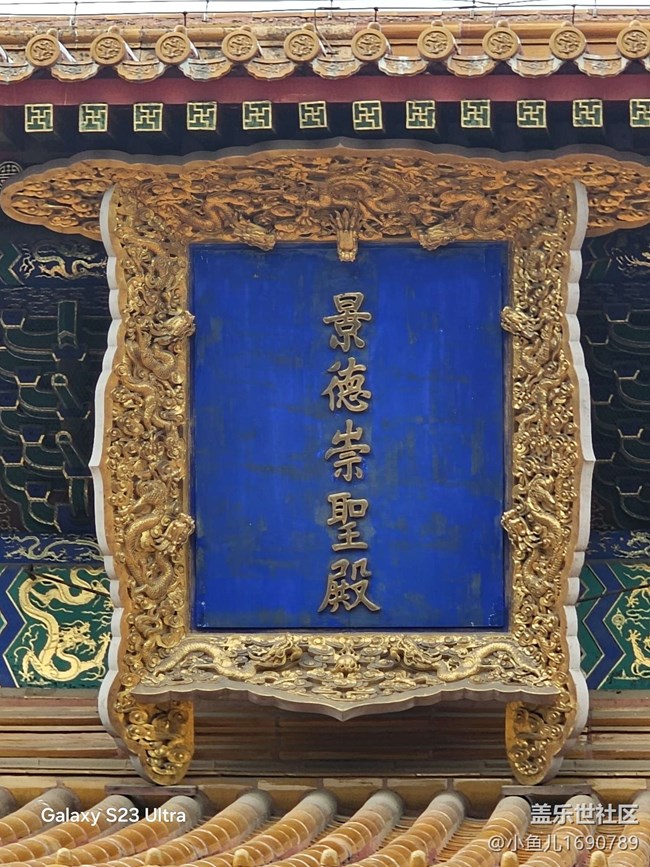 景德崇聖殿
Galaxy S23 Ultra
盖乐世社区
@小鱼儿1690789